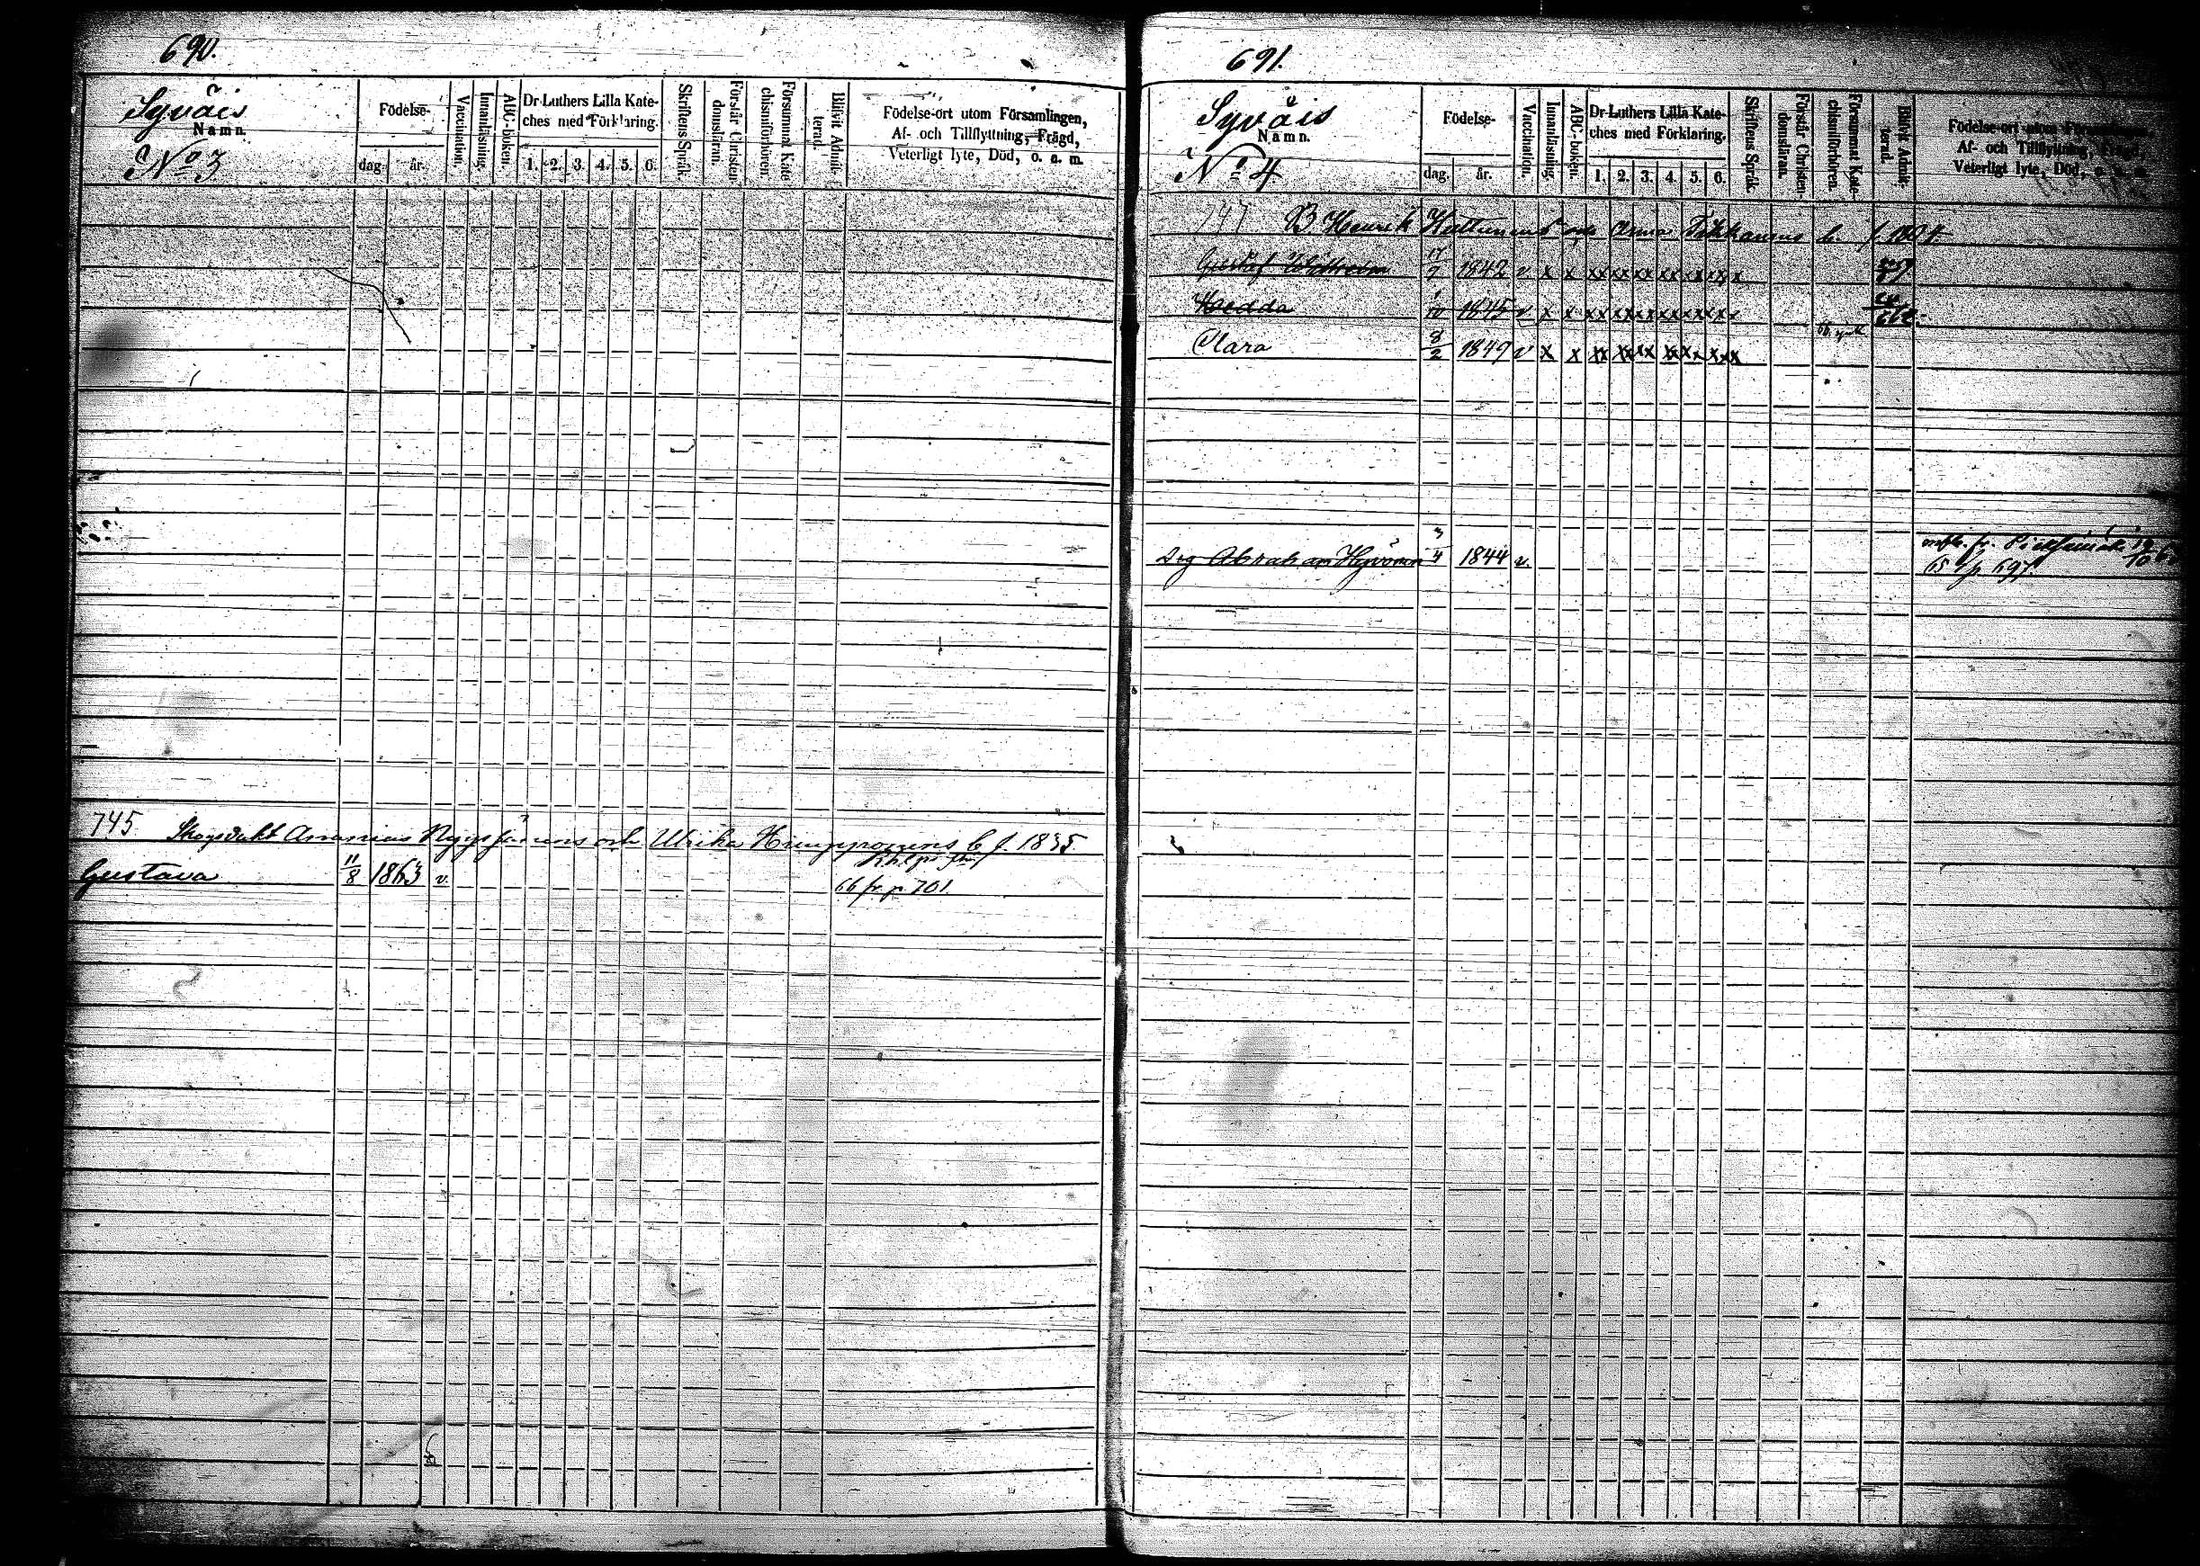 690.
Syväis
Namn.
No 3
Födelse-
dag. år.
Vaccination.
Innanläsning.
ABC-boken.
Dr Luthers Lilla Kate-
ches med Förklaring.
1. 2. 3. 4. 5. 6.
Skriftens Språk.
Förstår Christen-
domsläran.
Försummat Kate-
chismiförhören.
Blifvit Admit-
terad.
Födelse-ort utom Församlingen,
Af- och Tillflyttning, Frägd,
Veterligt lyte, Död, o. s. m.
745 Ananias och Ulrika b. f. 1835
Gustava 11/8 1863 v.
66 fr. p. 701.
691.
Syväis
Namn.
No 4
Födelse-
dag. år.
Vaccination.
Innanläsning.
ABC-boken.
Dr Luthers Lilla Kate-
ches med Förklaring.
1. 2. 3. 4. 5. 6.
Skriftens Språk.
Förstår Christen-
domsläran.
Försummat Kate-
chismiförhören.
Blifvit Admit-
terad.
Födelse-ort utom
Af- och Tillflyttning, Frägd,
Veterligt lyte, Död,
747 B Henrik och Anna b.
Gustaf 17/7 1842 v x x xx xx xx xx xx xx x
Hedda 1845 v x x xx xx xx xx xx xx
Clara 8/2 1849 v x x xx xx xx xx xx xx x
Drg Abraham Hyvönen 3/4 1844 v.
65 p. 697.